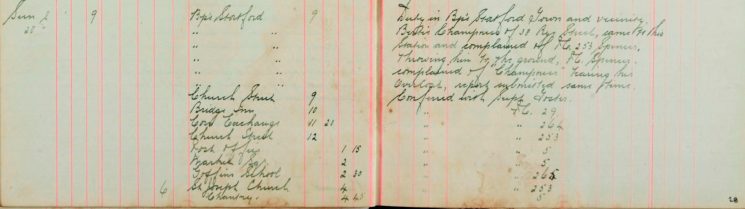 Sun 2 9 Bps Stortford 9 Duty in Bps Stortford Town and vicinity.
28 " " Champness of 38 Rye Street, came to this
" " Station and complained of P.C. 253 Spencer,
" " Throwing him to the ground, P.C. Spencer
" " complained of Champness tearing his
" " Overcoat, report submitted same time.
Church Street 9 Conferred with Supt Foster.
Bridge Inn 10 " P.C. 29
Corn Exchange 11 21 " 264
Church Street 12 " 253
Post Office 1 15 " 5
Market Sq. 2 " 5
School 2 30 " 265
6 St Joseph Church 4 " 253
Chantry. 4 45 5
28